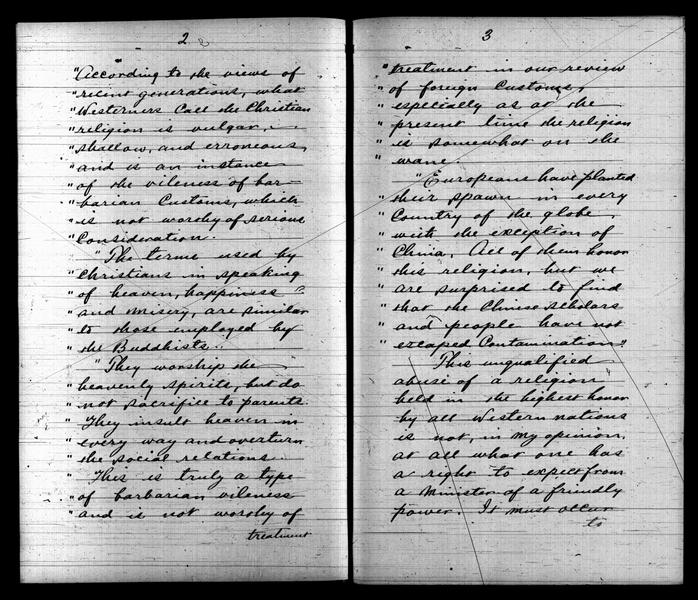 2
"According to the views of
"recent generations, what
"Westerners Call the Christian
"religion is vulgar,
"shallow, and erroneous,
"and is an instance
"of the vileness of bar-
"barian Customs, which
"is not worthy of serious
"Consideration.
"The terms used by
"Christians in speaking
"of heaven, happiness
"and misery, are similar
"to those employed by
"the Buddhists.
"They worship the
"heavenly spirits, but do
"not sacrifice to parents.
"They insult heaven in
"every way and overturn
"the social relations.
"This is truly a type
"of barbarian vileness
"and is not worthy of
treatment
3
"treatment in our review
"of foreign Customs,
"especially as at the
"present time the religion
"is somewhat on the
"wane.
"Europeans have planted
"their spawn in every
"Country of the globe
"with the exception of
"China. All of them honor
"this religion, but we
"are surprised to find
"that the Chinese scholars
"and people have not
"escaped Contamination."
This unqualified
abuse of a religion
held in the highest honor
by all Western nations
is not, in my opinion,
at all what one has
a right to expect from
a Minister of a friendly
power. It must occur
to